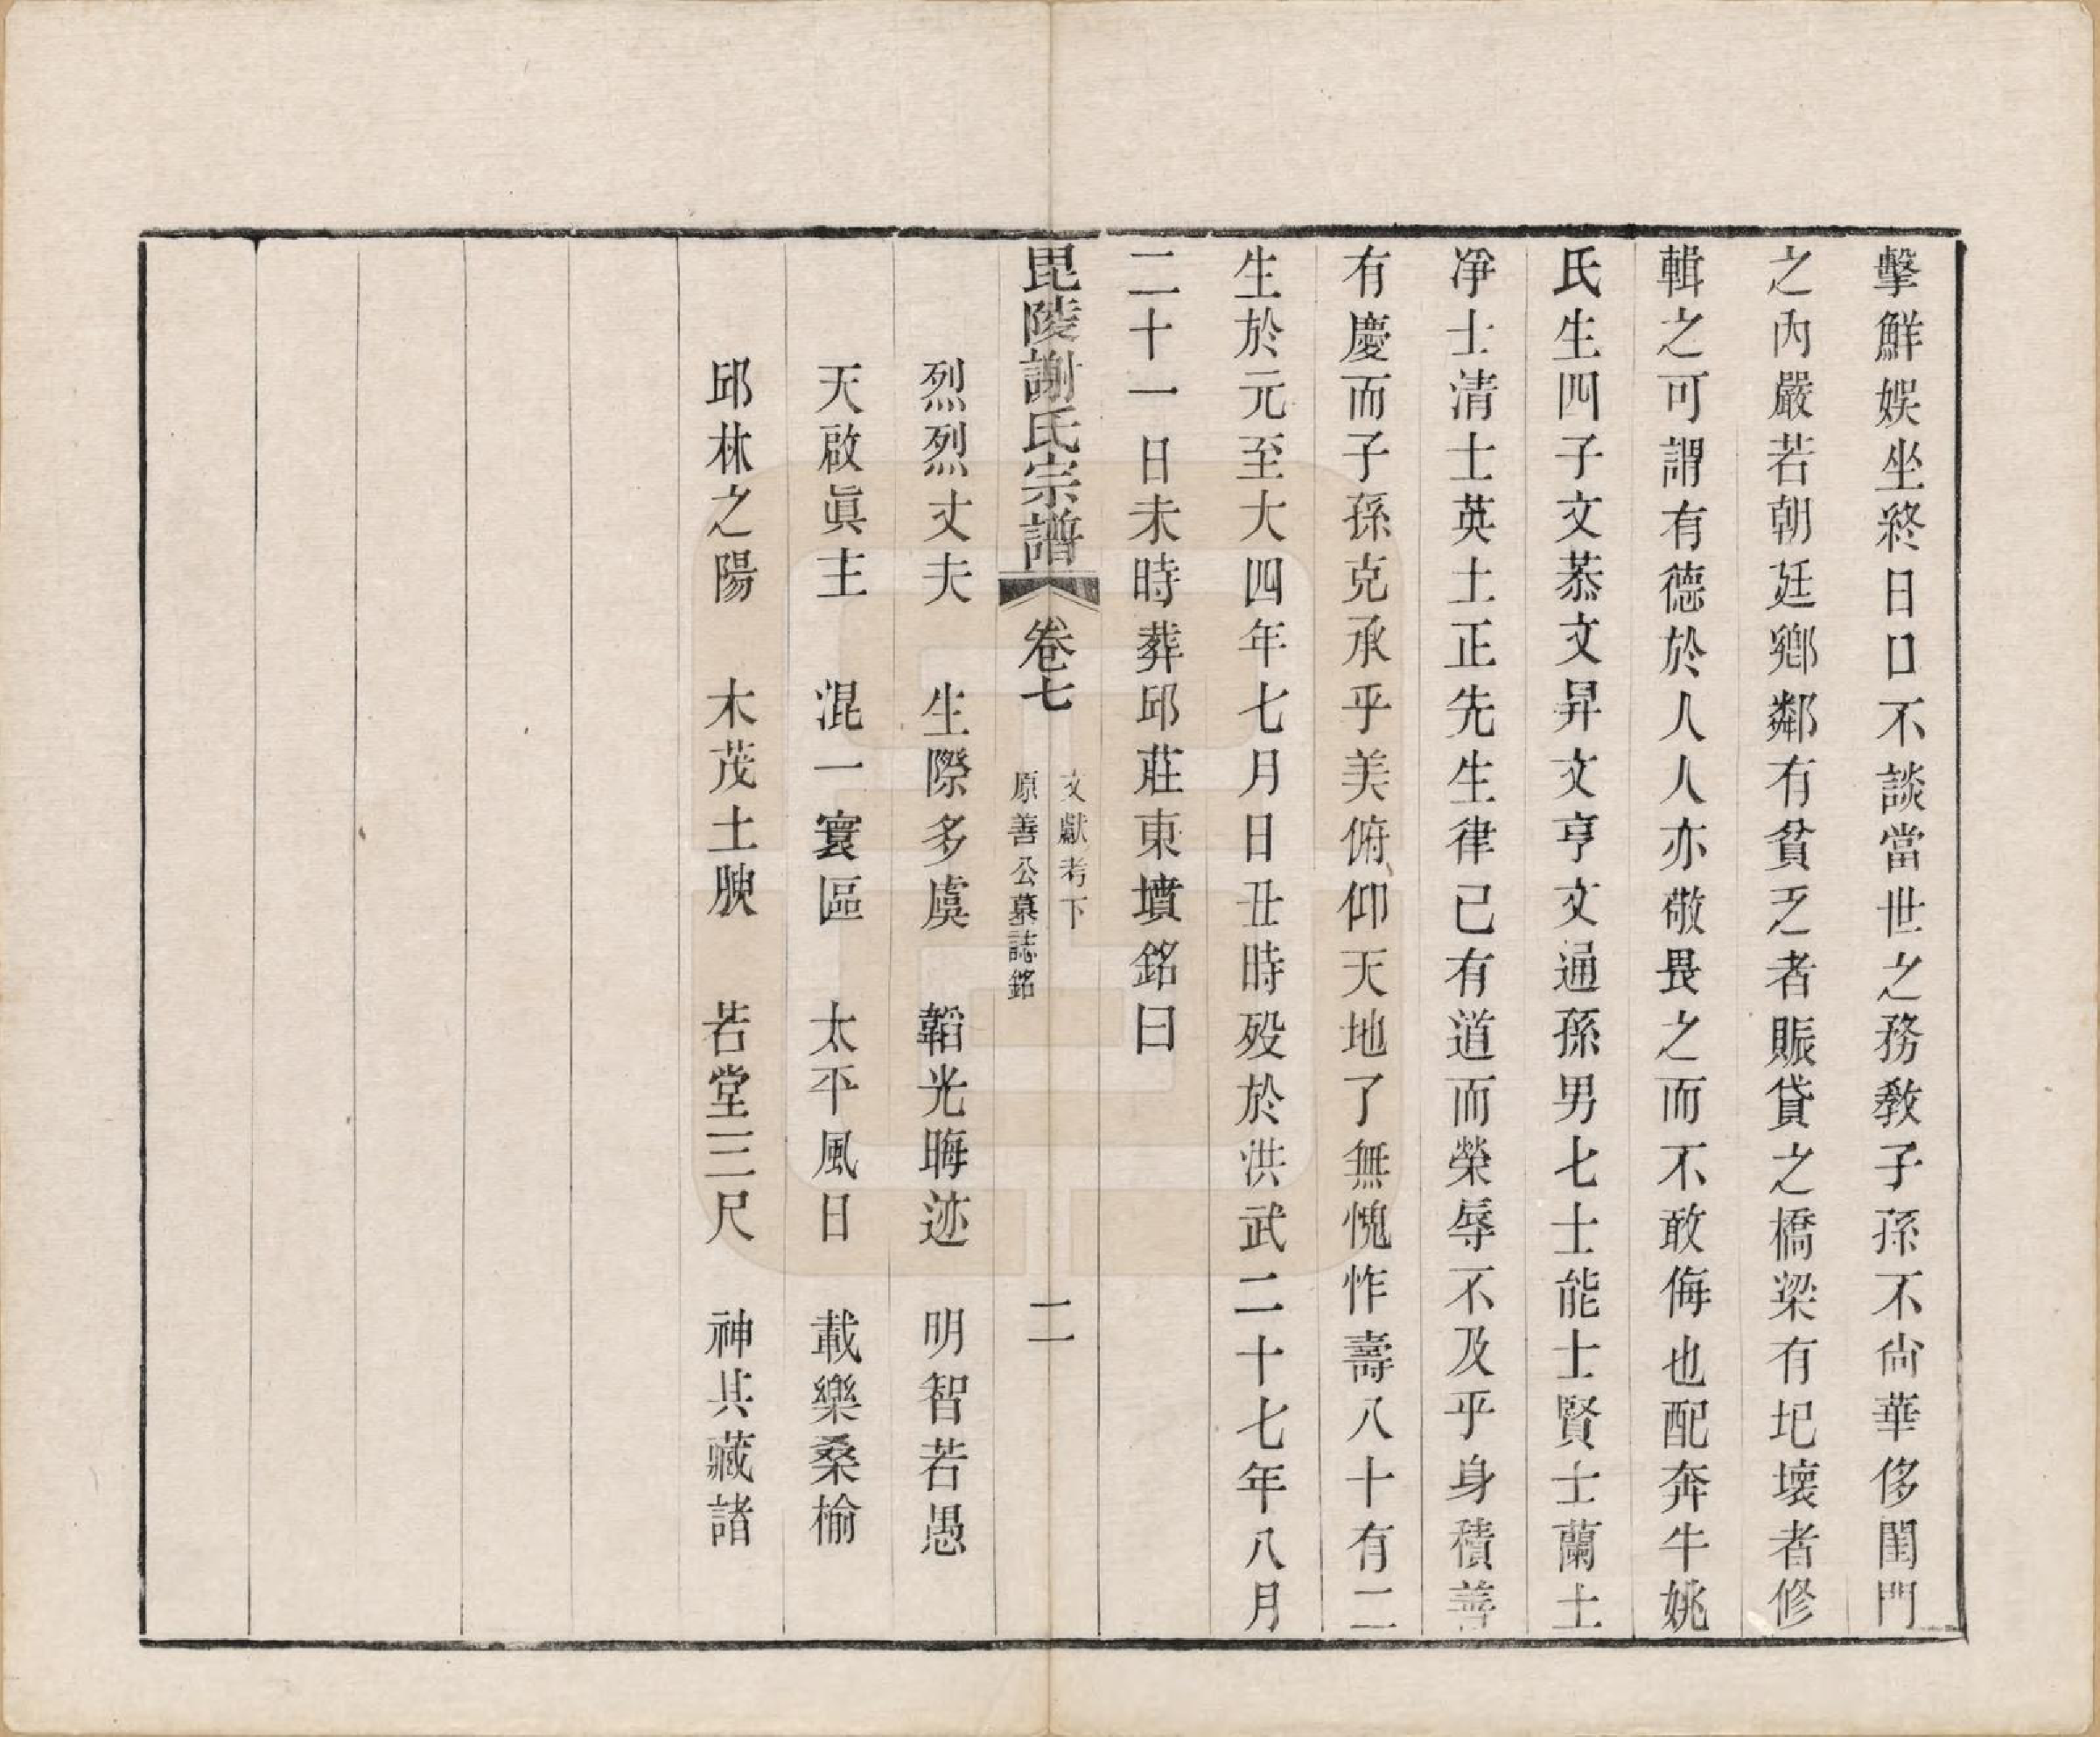 擊鮮娛坐終日口不談當世之務教子孫不尙華侈閨門
之內嚴若朝廷鄉鄰有貧乏者賑貸之橋梁有圯壞者修
輯之可謂有德於人人亦敬畏之而不敢侮也配奔牛姚
氏生四子文恭文昇文亨文通孫男七士能士賢士蘭士
淨士清士英士正先生律己有道而榮辱不及乎身積善
有慶而子孫克承乎美俯仰天地了無愧怍壽八十有二
生於元至大四年七月日丑時殁於洪武二十七年八月
二十一日未時葬邱莊東墳銘曰
毘陵謝氏宗譜 卷七 文獻考下 原善公墓誌銘 二
烈烈丈夫 生際多虞 韜光晦迹 明智若愚
天啟眞主 混一寰區 太平風日 載樂桑榆
邱林之陽 木茂土腴 若堂三尺 神其藏諸